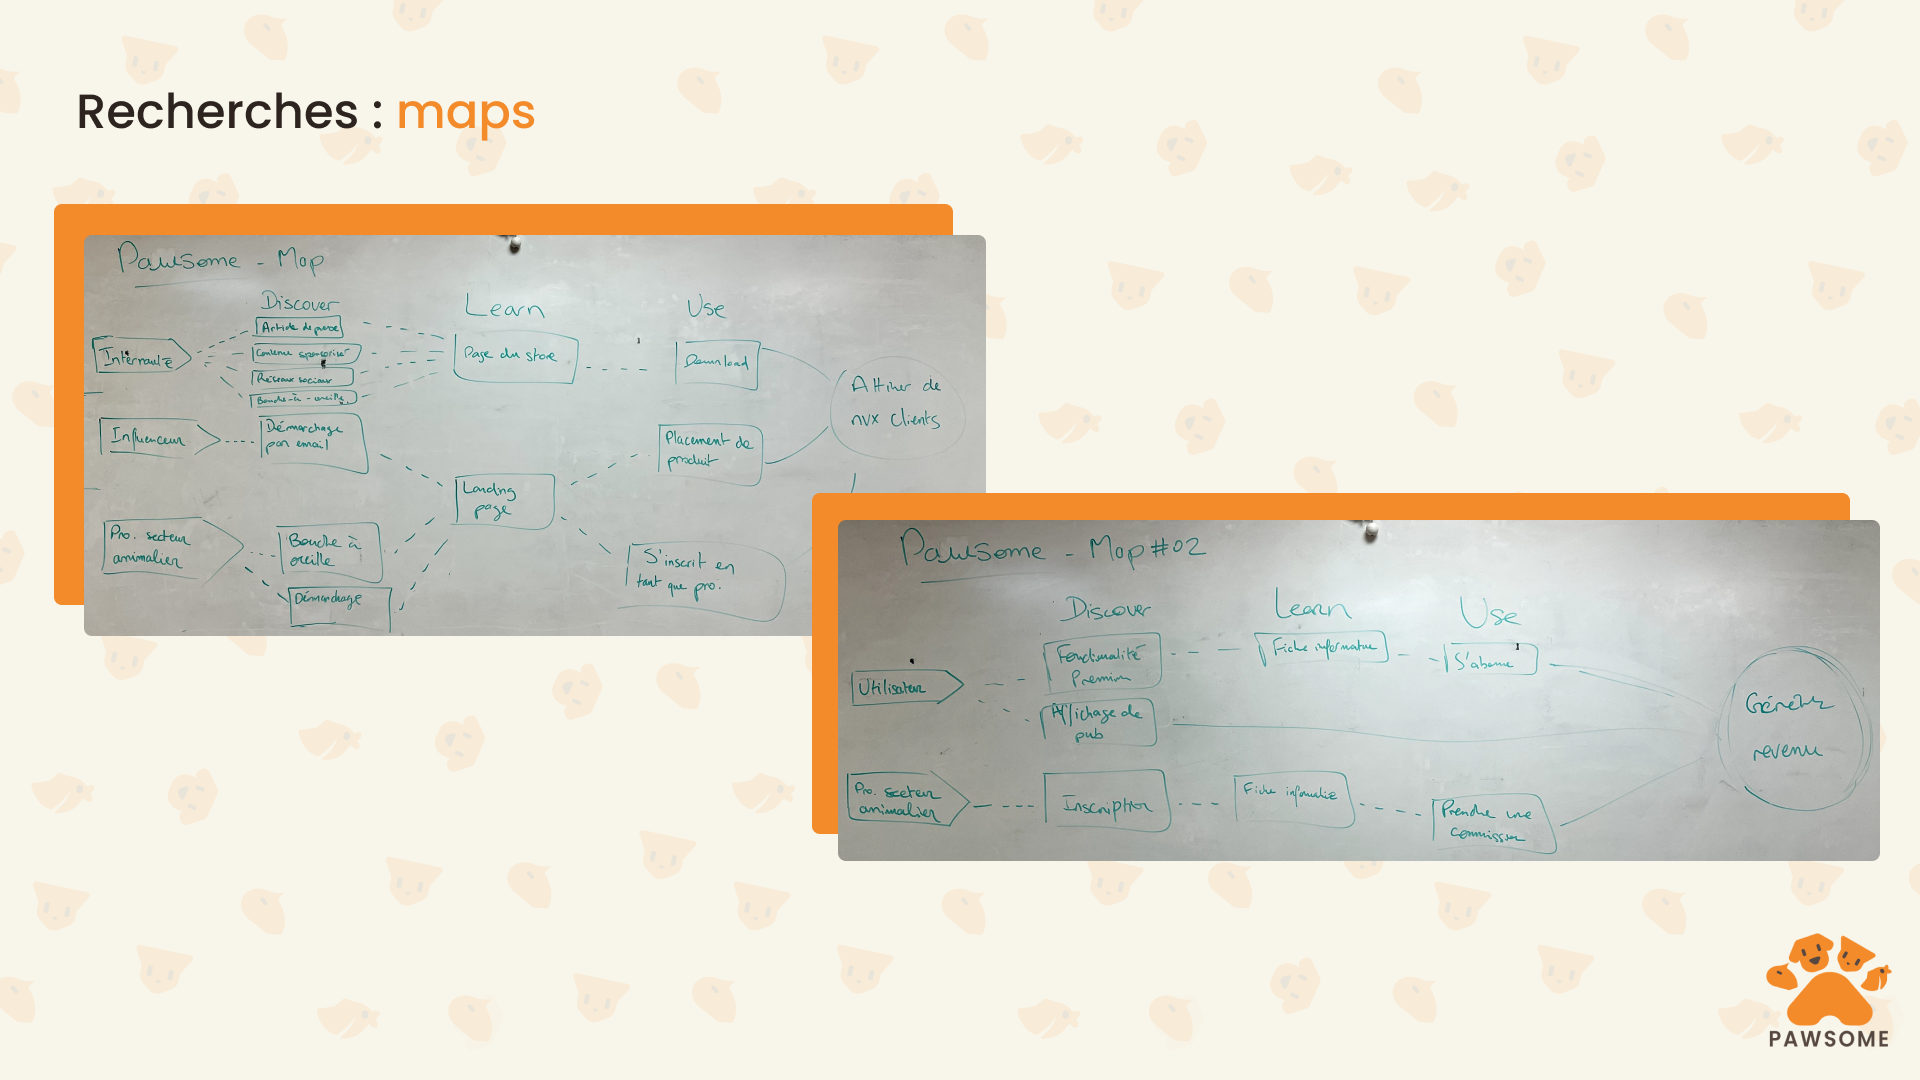 Recherches : maps
Pawsome - Map
Discover
Learn
Use
Internaute
Article de presse
Contenu sponsorisé
Réseaux sociaux
Bouche-à-oreille
Page du store
Download
Attirer de
nvx clients
Influenceur
Démarchage
par email
Landing
page
Placement de
produit
Pro. secteur
animalier
Bouche à
oreille
Démarchage
S'inscrit en
tant que pro.
Pawsome - Map #02
Discover
Learn
Use
Utilisateur
Fonctionalité
Premium
Fiche informative
S'abonne
Affichage de
pub
Générer
revenu
Pro. secteur
animalier
Inscription
Fiche informative
Prendre une
commission
PAWSOME